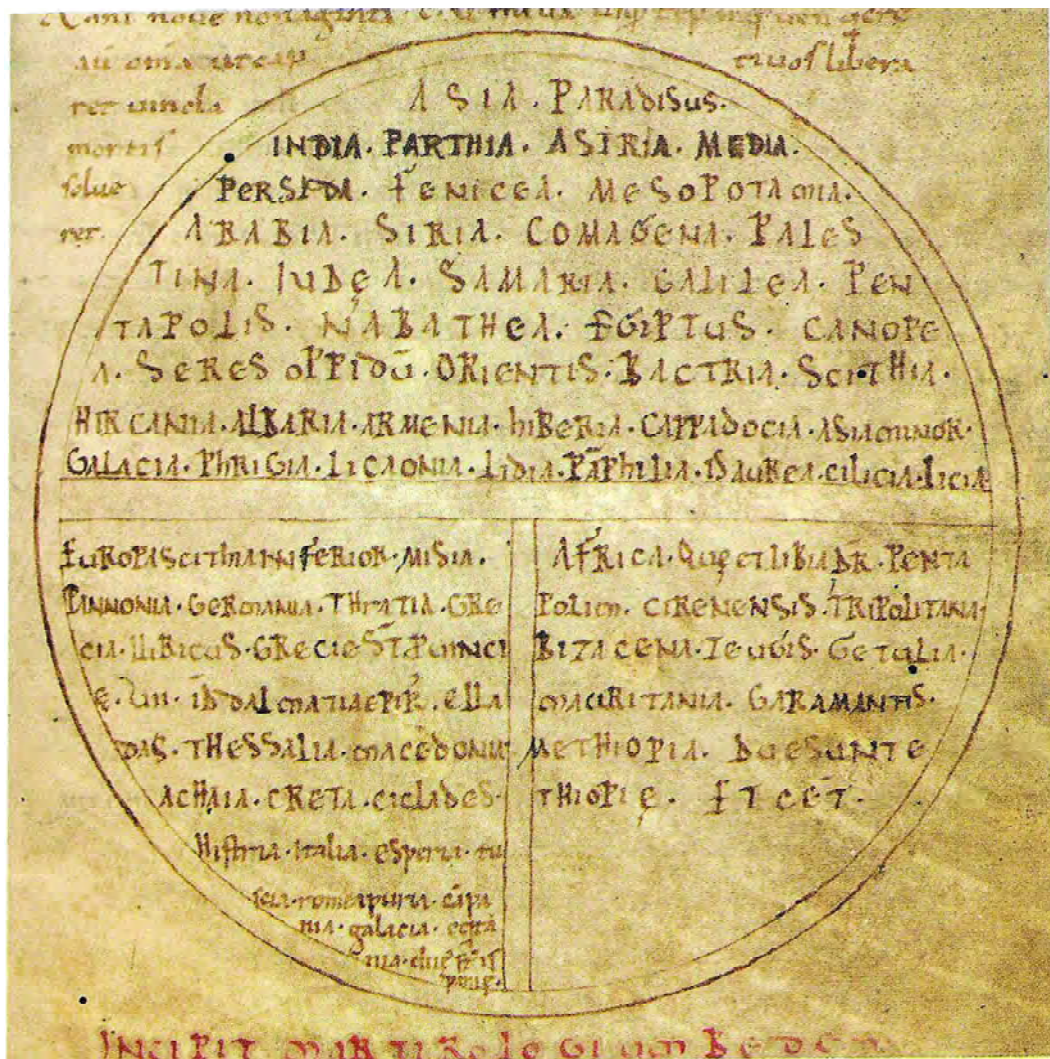 tivos libera
ret vincla
mortis
solve
ret.
ASIA. PARADISUS.
INDIA. PARTHIA. ASIRIA. MEDIA.
PERSIDA. FENICEA. MESOPOTAMIA.
ARABIA. SIRIA. COMAGENA. PALES
TINA. IUDEA. SAMARIA. GALILEA. PEN
TAPOLIS. NABATHEA. EGIPTUS. CANOPE
A. SERES OPPIDŪ. ORIENTIS. BACTRIA. SCITHIA.
HIRCANIA. ALBARIA. ARMENIA. HIBERIA. CAPPADOCIA. ASIA MINOR.
GALACIA. PHRIGIA. LICAONIA. LIDIA. PĀPHILIA. ISAUREA. CILICIA. LICIA
EUROPA SCITHIA INFERIOR. MISIA.
PANNONIA. GERMANIA. THRATIA. GRE
CIA. ILIRICUS. GRECIE
DALMATIA ELLA
DAS. THESSALIA. MACEDONIA
ACHAIA. CRETA. CICLADES.
Histria. italia. esperia. tu
scia.
nia. galacia.
AFRICA. QUE ET LIBIA PENTA
POLIM. CIRENENSIS. TRIPOLITANA.
BIZACENA. GETULIA.
MAURITANIA. GARAMANTIS.
ETHIOPIA. DUE SUNT E
THIOPIE. ET CET.
INCIPIT MARTIROLOGIUM